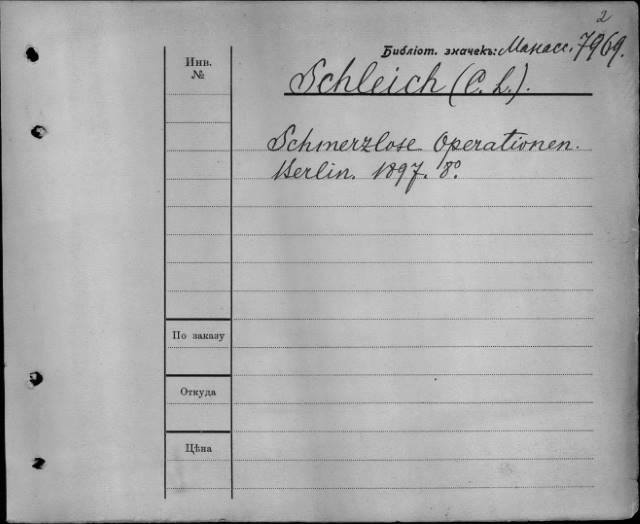 2
Библіот. значекъ: Манасс. 7969.
Инв.
№
Schleich (C. L.).
Schmerzlose Operationen.
Berlin. 1897. 8°.
По заказу
Откуда
Цѣна